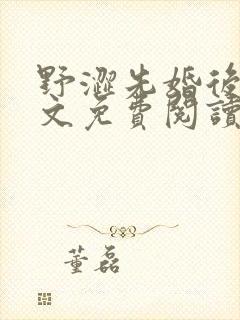 野澀先婚後
文免費閱讀
董磊